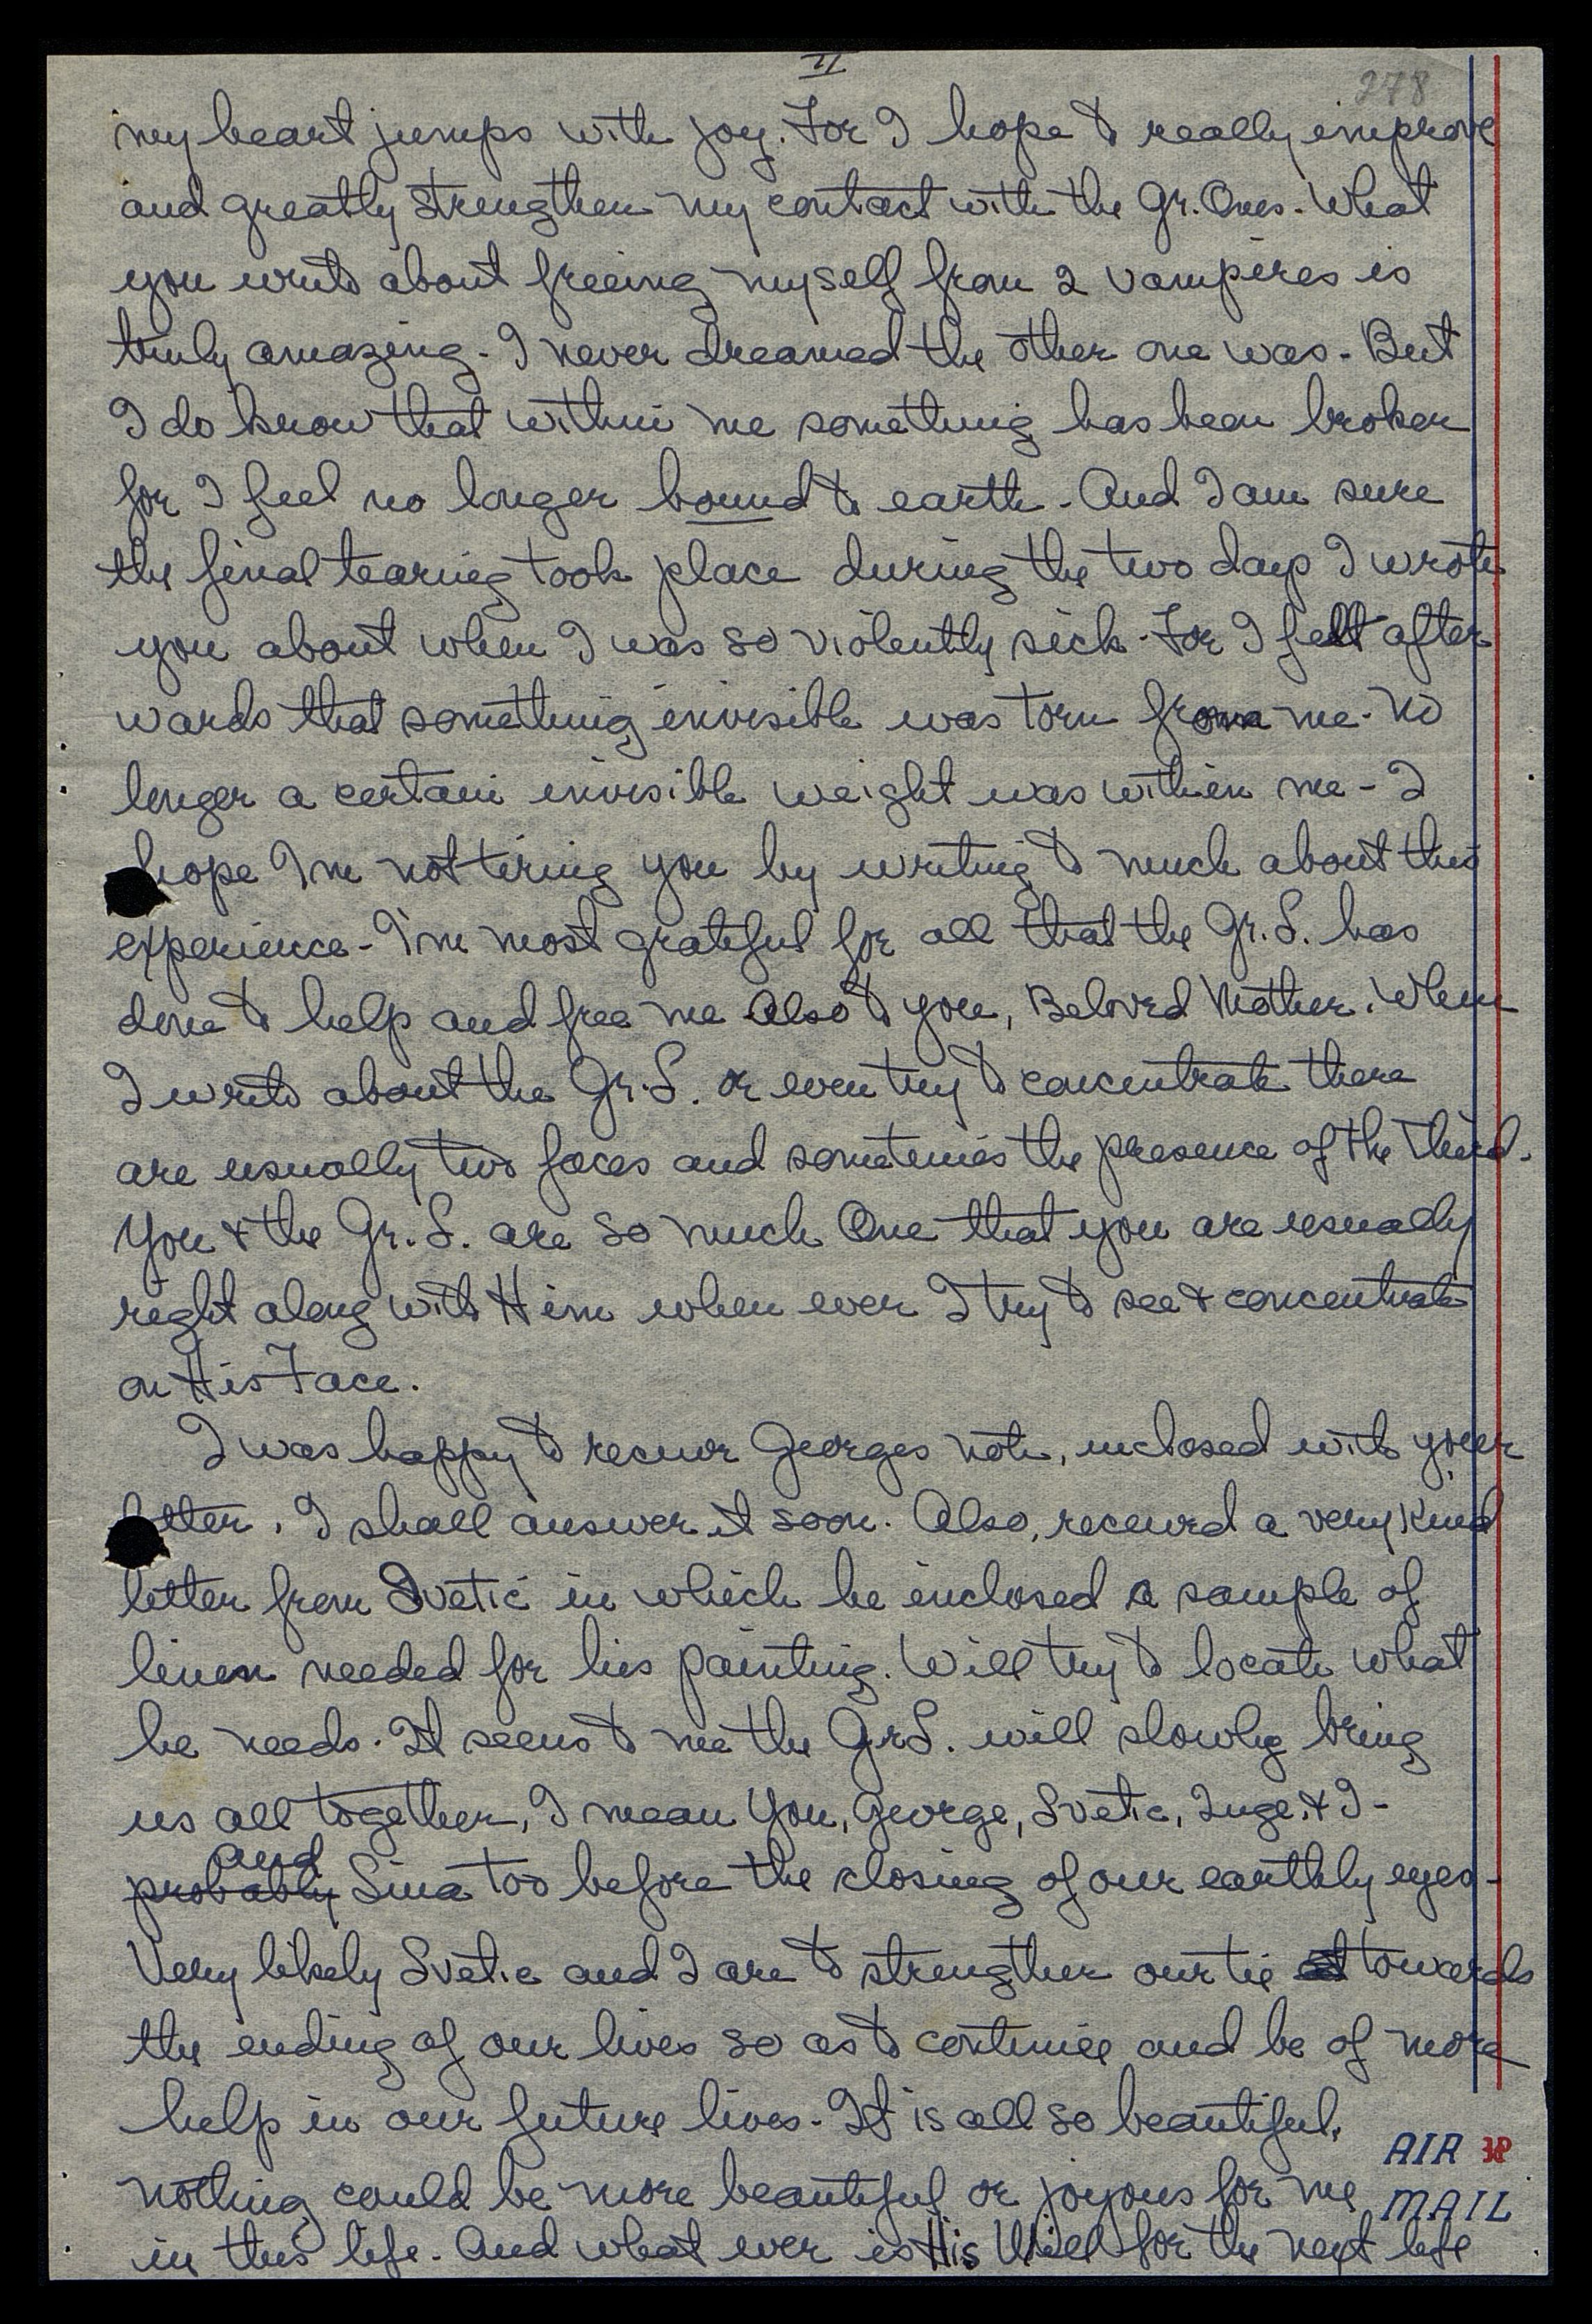 II
278
my heart jumps with joy. For I hope to really improve
and greatly strengthen my contact with the Gr. Ones. What
you write about freeing myself from 2 vampires is
truly amazing - I never dreamed the other one was - But
I do know that within me something has been broken
for I feel no longer bound to earth - And I am sure
the final tearing took place during the two days I wrote
you about when I was so violently sick - For I felt after
wards that something invisible was torn from me - No
longer a certain invisible weight was within me - I
hope I'm not tiring you by writing to much about this
experience - I'm most grateful for all that the Gr. S. has
done to help and free me also to you, Beloved Mother. When
I write about the Gr. S. or even try to concentrate there
are usually two faces and sometimes the presence of the Third.
You & the Gr. S. are so much One that you are usually
right along with Him when ever I try to see & concentrate
on His Face.
I was happy to receive Georges note, inclosed with your
letter. I shall answer it soon. Also, received a very kind
letter from Svetic in which he enclosed a sample of
linen needed for his painting. Will try to locate what
he needs. It seems to me the Gr S. will slowly bring
us all together, I mean You, George, Svetic, Inge, & I -
and
probably Sina too before the closing of our earthly eyes -
Very likely Svetic and I are to strengthen our tie at towards
the ending of our lives so as to continue and be of more
help in our future lives - It is all so beautiful,
nothing could be more beautiful or joyous for me
in this life - And what ever is His Will for the next life
AIR
MAIL